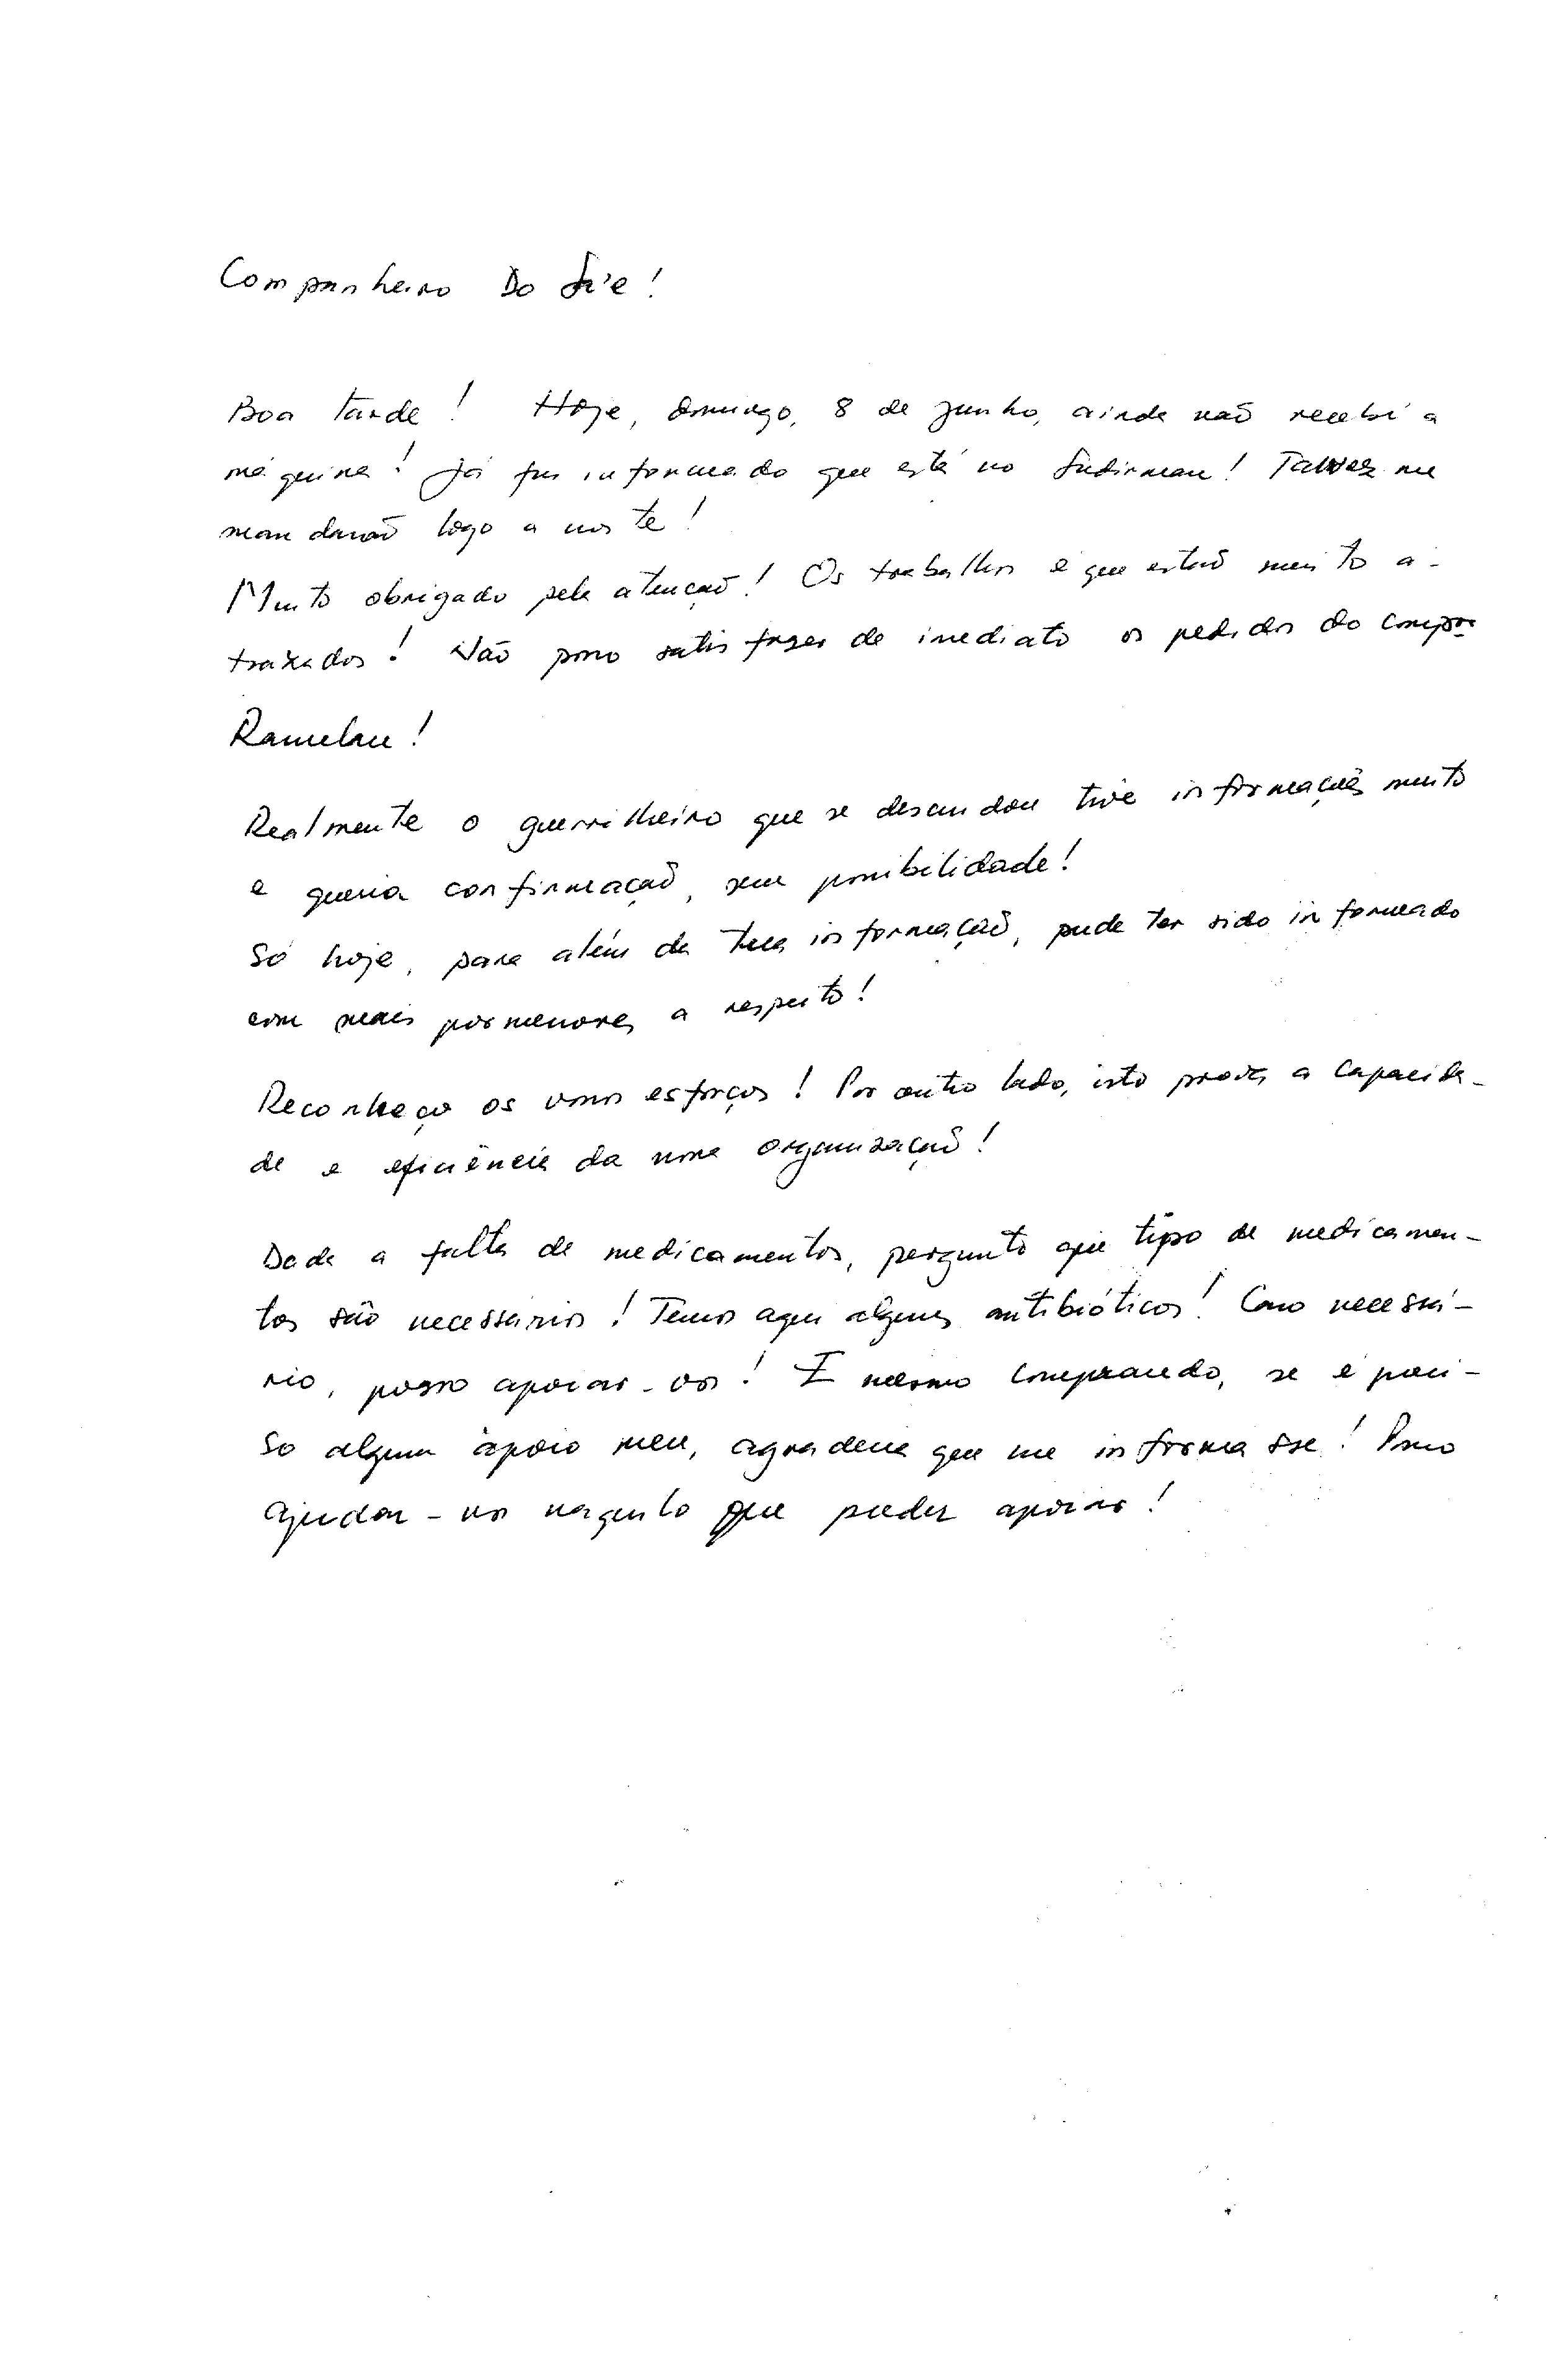 Companheiro Do
Boa tarde! Hoje, domingo, 8 de junho, ainda não recebi a
máquina! Já fui informado que está no Sudirman! Talvez me
mandarão logo a noite!
Muito obrigado pela atenção! Os trabalhos é que estão muito a-
traxados! Não posso satisfazer de imediato os pedidos do compo
Ramelau!
Realmente o guerrilheiro que se descuidou tive informações muito
e queria confirmação, sem possibilidade!
Só hoje, para além da tua informação, pude ter sido informado
com mais pormenores a respeito!
Reconheço os vossos esforços! Por outro lado, isto prova a capacida-
de e eficiência da nossa organização!
Dada a falta de medicamentos, pergunto que tipo de medicamen-
tos são necessários! Temos aqui alguns antibióticos! Caso necessá-
rio, posso apoiar-vos! E mesmo comprando, se é preci-
so algum apoio meu, agradecia que me informasse! Posso
ajudar-vos naquilo que puder apoiar!